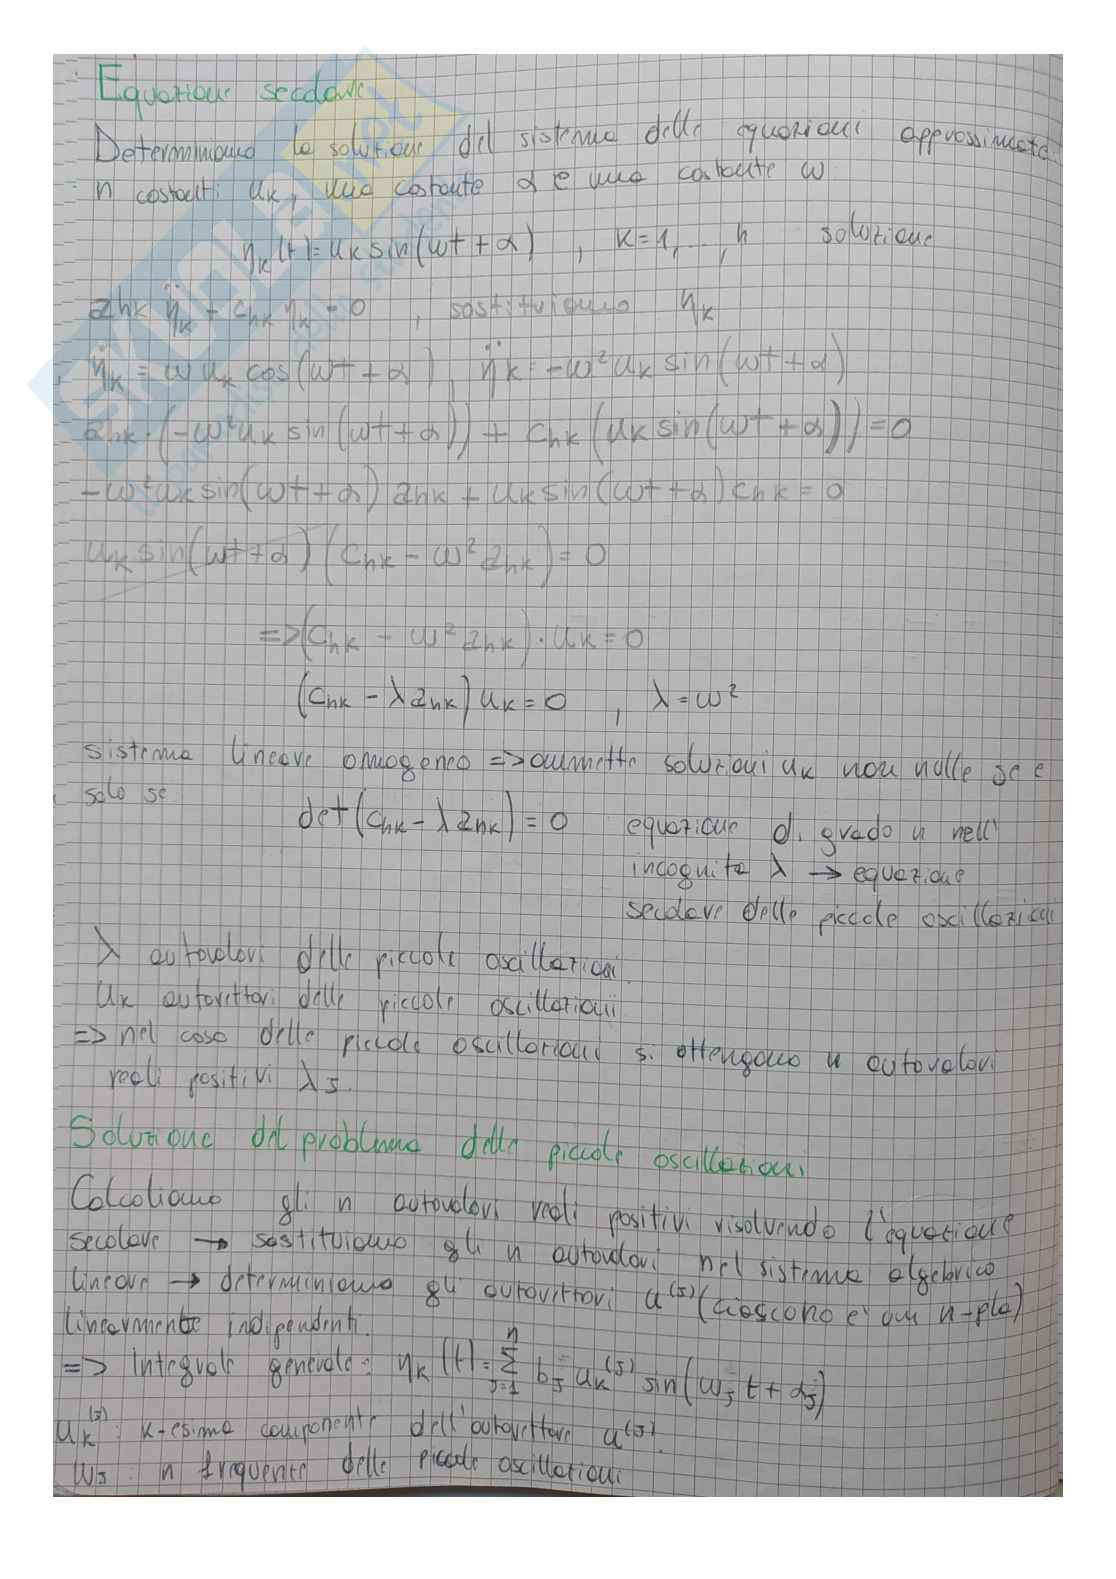 Equazione secolare
Determiniamo la soluzione del sistema delle equazioni approssimate
n costanti uₖ, una costante α e una costante ω
ηₖ(t)=uₖ sin(ωt+α) , k=1,...,n soluzione
aₕₖ η̈ₖ + cₕₖ ηₖ = 0 , sostituiamo ηₖ
η̇ₖ = ω uₖ cos(ωt+α), η̈ₖ = -ω² uₖ sin(ωt+α)
aₕₖ·(-ω² uₖ sin(ωt+α)) + cₕₖ(uₖ sin(ωt+α))=0
-ω² uₖ sin(ωt+α) aₕₖ + uₖ sin(ωt+α) cₕₖ = 0
uₖ sin(ωt+α) (cₕₖ - ω² aₕₖ) = 0
=> (cₕₖ - ω² aₕₖ)·uₖ = 0
(cₕₖ - λ aₕₖ) uₖ = 0 , λ = ω²
sistema lineare omogeneo => ammette soluzioni uₖ non nulle se e
solo se
det(cₕₖ - λ aₕₖ) = 0 equazione di grado n nell'
incognita λ → equazione
secolare delle piccole oscillazioni
λ autovalori delle piccole oscillazioni
uₖ autovettori delle piccole oscillazioni
=> nel caso delle piccole oscillazioni si ottengono n autovalori
reali positivi λⱼ.
Soluzione del problema delle piccole oscillazioni
Calcoliamo gli n autovalori reali positivi risolvendo l'equazione
secolare → sostituiamo gli n autovalori nel sistema algebrico
lineare → determiniamo gli autovettori u⁽ʲ⁾ (ciascuno è una n-pla)
linearmente indipendenti.
=> Integrale generale: ηₖ(t)= Σⁿⱼ₌₁ bⱼ uₖ⁽ʲ⁾ sin(ωⱼ t + αⱼ)
uₖ⁽ʲ⁾: k-esima componente dell'autovettore u⁽ʲ⁾.
ωⱼ : n frequenze delle piccole oscillazioni
SKUOLA.net